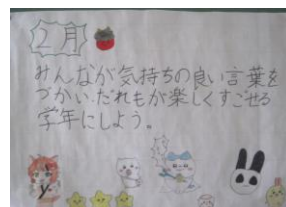 2月
みんなが気持ちの良い言葉を
づかい、だれもが楽しくすごせる
学年にしよう。